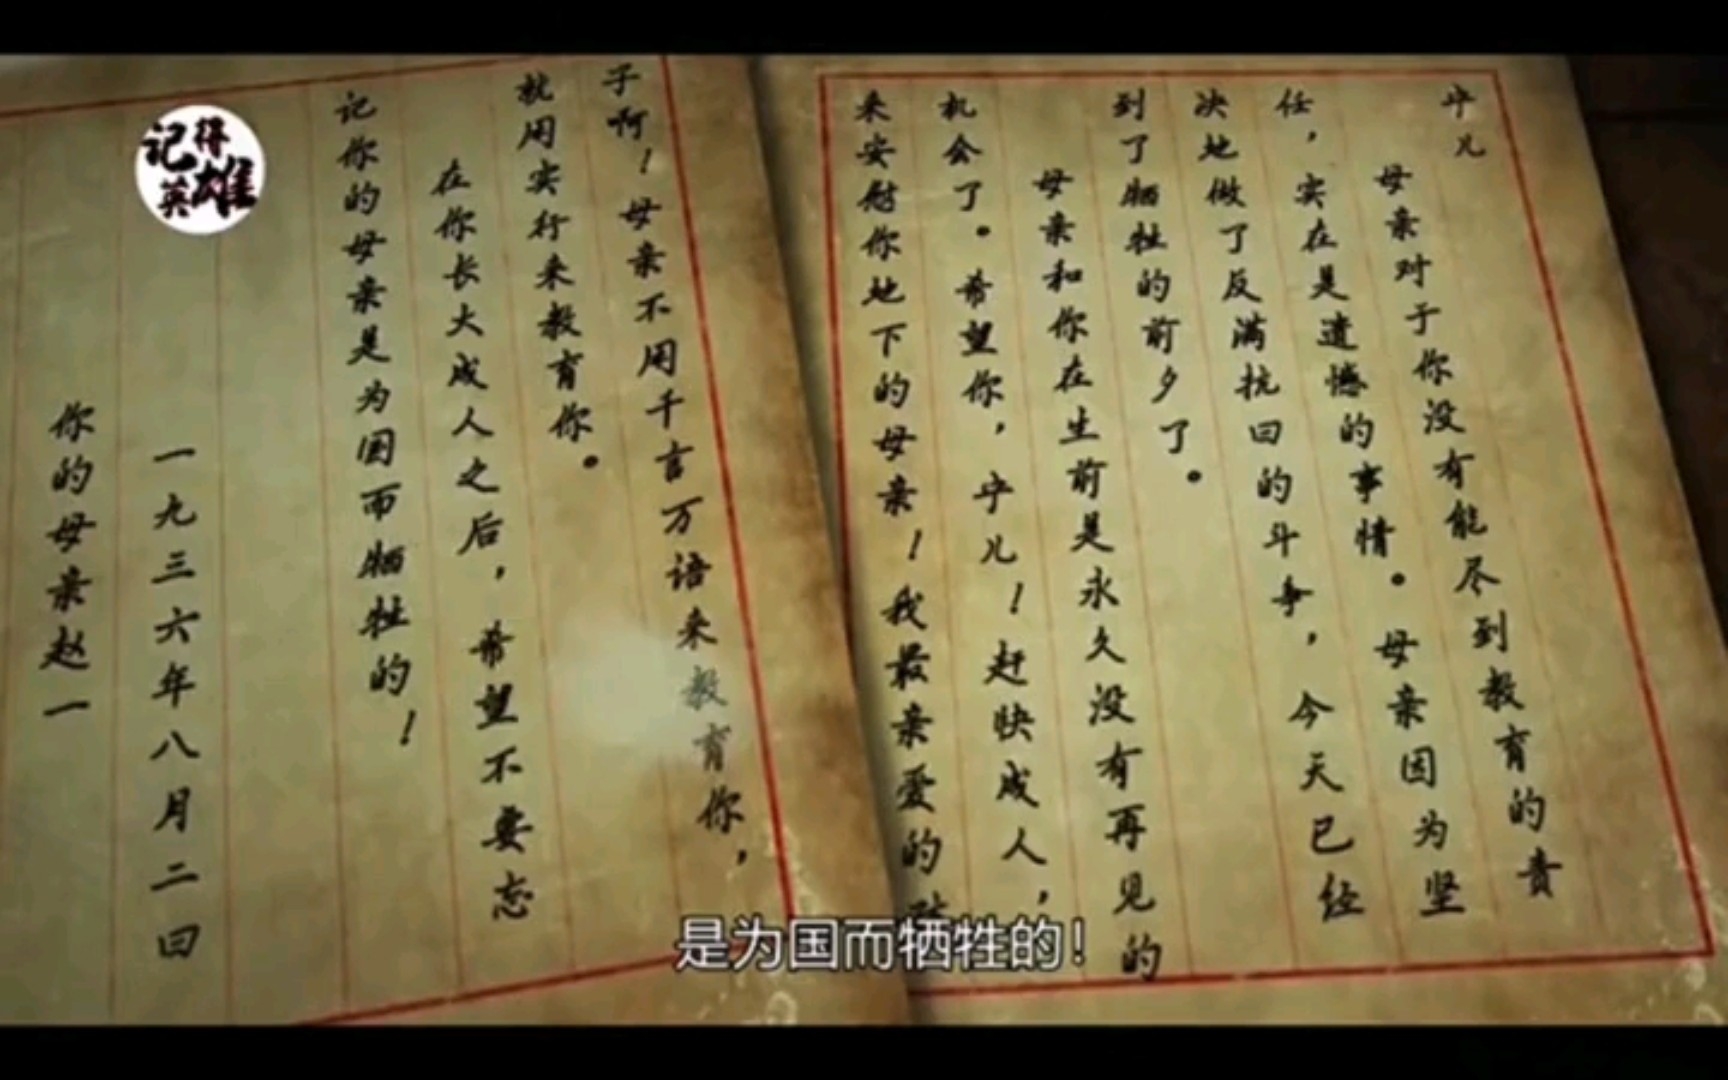 宁儿
母亲对于你没有能尽到教育的责
任，实在是遗憾的事情。母亲因为坚
决地做了反满抗日的斗争，今天已经
到了牺牲的前夕了。
母亲和你在生前是永久没有再见的
机会了。希望你，宁儿！赶快成人，
来安慰你地下的母亲！我最亲爱的
子啊！母亲不用千言万语来教育你，
就用实行来教育你。
在你长大成人之后，希望不要忘
记你的母亲是为国而牺牲的！
一九三六年八月二日
你的母亲赵一
记得
英雄
是为国而牺牲的！